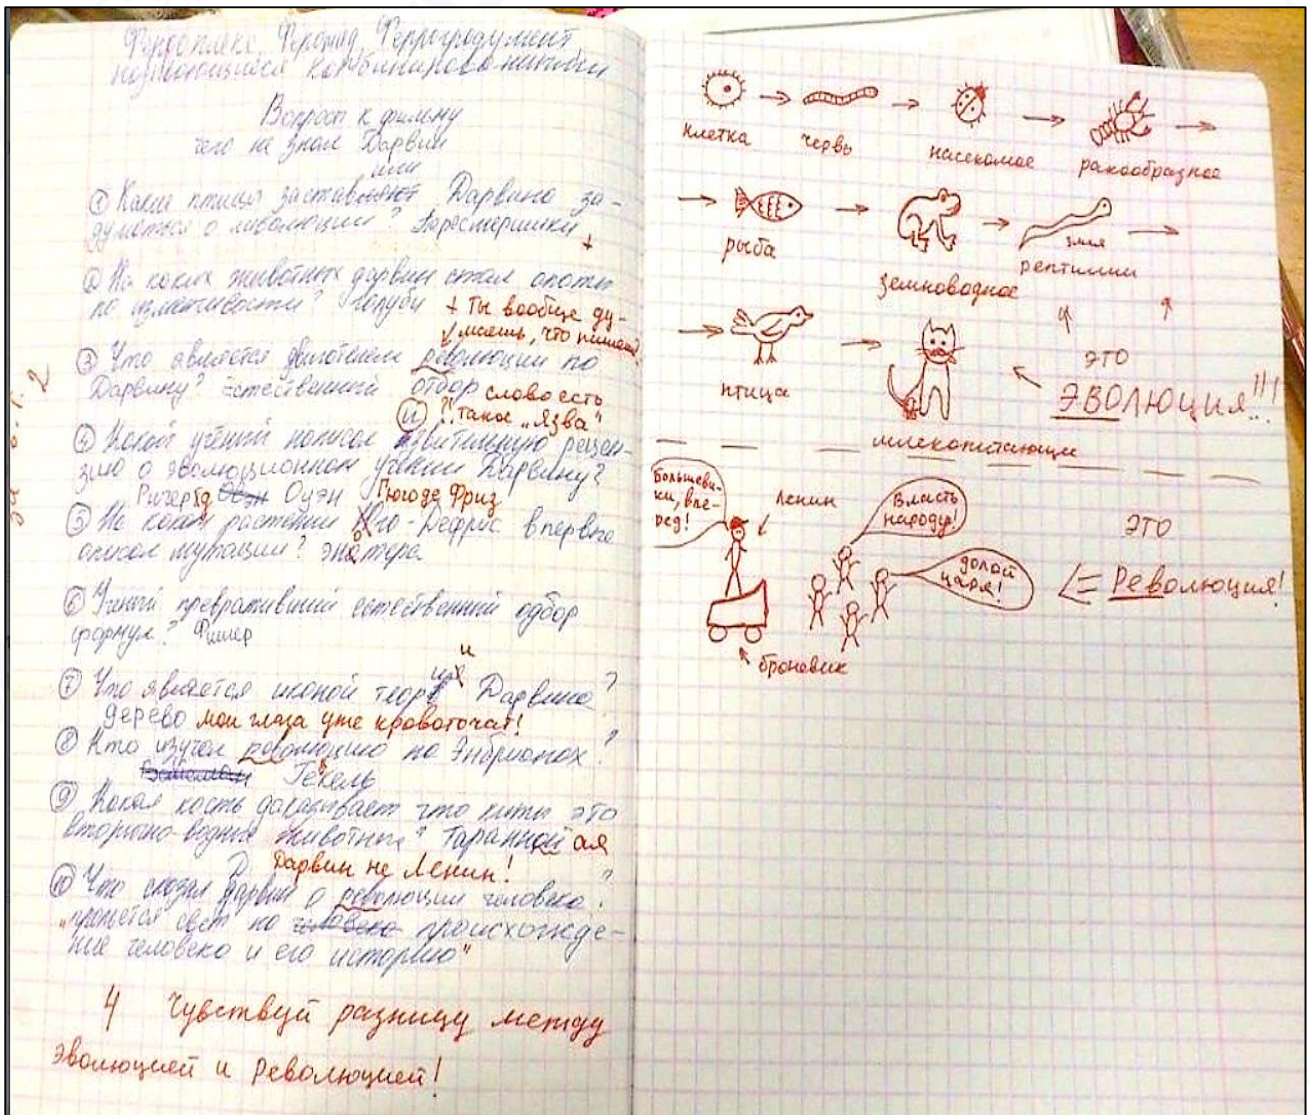 Ферроплекс, Феромед,
комбинированный
Вопросы к фильму
чего не знал Дарвин
или
① Какие птицы заставляют Дарвина за-
думаться о революции?
+
② На каких животных дарвин ставил опыты
по изменчивости? голуби + Ты вообще ду-
маешь, что пишешь?
③ Что является двигателем революции по
Дарвину? Естественный отбор слово есть
и ?! такое „Язва“
④ Какой учёный написал язвительную рецен-
зию о эволюционном учении Дарвину?
Ричард Оуэн Гюгоде Фриз
⑤ На каком растении Юго-Дефриз впервые
описал мутации?
⑥ Учёный превративший естественный одбор
формул? Фишер
и
⑦ Что является иконой теор Дарвина?
дерево мои глаза уже кровоточат!
⑧ Кто изучал революцию по Энбрионах?
Гекель
⑨ Какая кость доказывает что киты это
вторично-водные животные? Таранной ая
Д Дарвин не Ленин!
⑩ Что сказал дарвин о революции человека?
„прольётся свет на человека происхожде-
ние человека и его историю“
4 Чувствуй разницу между
Эволюцией и Революцией!
2
клетка червь насекомое ракообразное
рыба земноводное змея рептилии
птица ЭТО
ЭВОЛЮЦИЯ!!!
млекопитающие
Большеви-
ки, впе-
ред!
Ленин
Власть
народу!
долой
царя!
ЭТО
Революция!
броневик